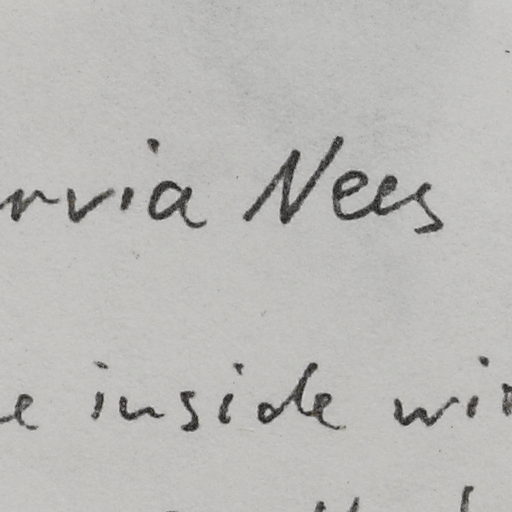 rvia Nees
e inside wi